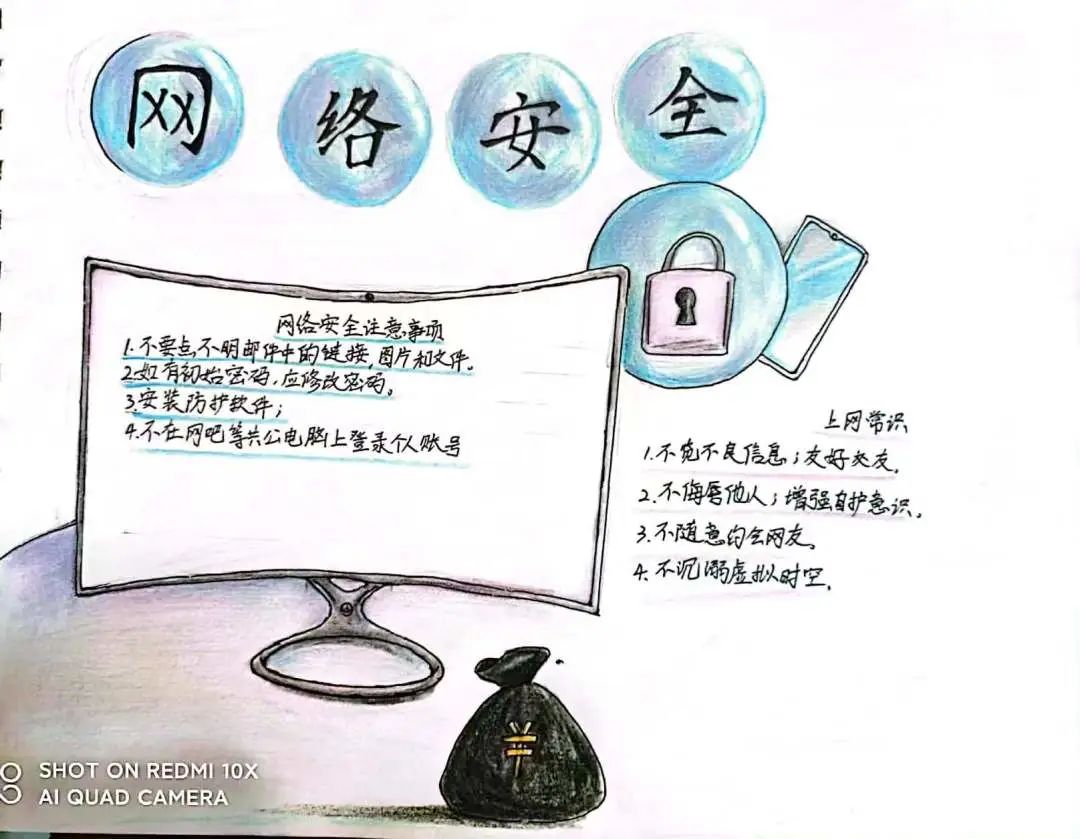 网络安全
网络安全注意事项
1.不要点不明邮件中的链接,图片和文件。
2.如有初始密码,应修改密码。
3.安装防护软件;
4.不在网吧等共公电脑上登录个人账号
上网常识
1.不览不良信息;友好交友。
2.不侮辱他人;增强自护意识。
3.不随意约会网友。
4.不沉溺虚拟时空。
SHOT ON REDMI 10X
AI QUAD CAMERA